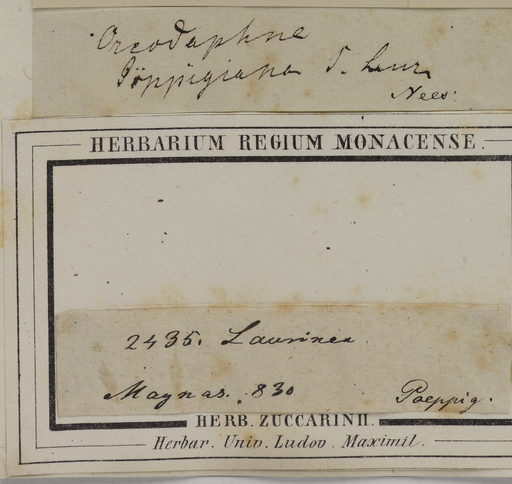 Oreodaphne
Pöppigiana S. Laur.
Nees.
HERBARIUM REGIUM MONACENSE.
2435. Laurinea
Maynas. 830 Poeppig.
HERB. ZUCCARINII.
Herbar. Univ. Ludov. Maximil.